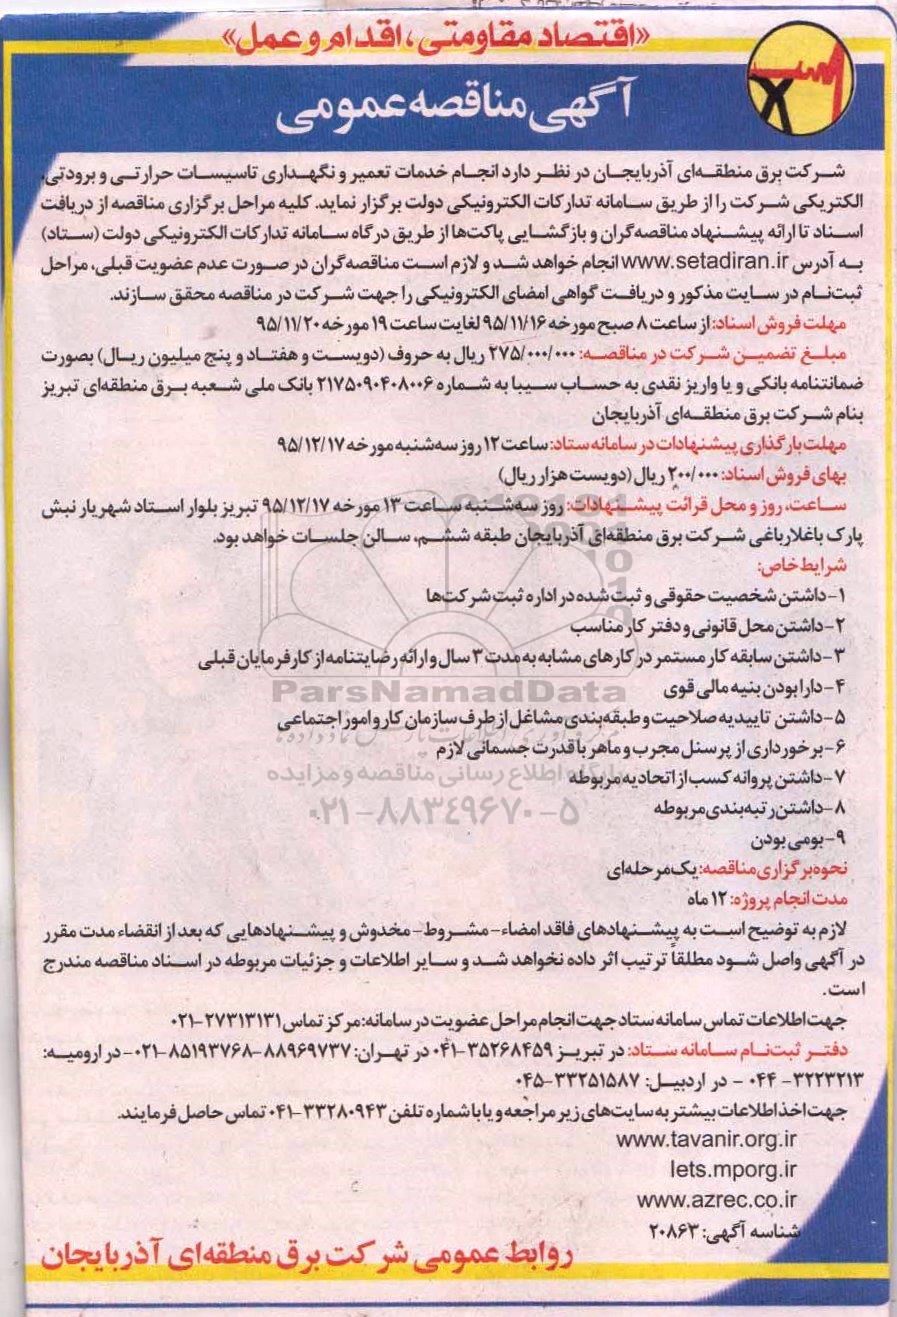 «اقتصاد مقاومتی، اقدام و عمل»
آگهی مناقصه عمومی
شرکت برق منطقه‌ای آذربایجان در نظر دارد انجام خدمات تعمیر و نگهداری تاسیسات حرارتی و برودتی،
الکتریکی شرکت را از طریق سامانه تدارکات الکترونیکی دولت برگزار نماید. کلیه مراحل برگزاری مناقصه از دریافت
اسناد تا ارائه پیشنهاد مناقصه‌گران و بازگشایی پاکت‌ها از طریق درگاه سامانه تدارکات الکترونیکی دولت (ستاد)
به آدرس www.setadiran.ir انجام خواهد شد و لازم است مناقصه‌گران در صورت عدم عضویت قبلی، مراحل
ثبت‌نام در سایت مذکور و دریافت گواهی امضای الکترونیکی را جهت شرکت در مناقصه محقق سازند.
مهلت فروش اسناد: از ساعت ۸ صبح مورخه ۹۵/۱۱/۱۶ لغایت ساعت ۱۹ مورخه ۹۵/۱۱/۲۰
مبلغ تضمین شرکت در مناقصه: ۲۷۵/۰۰۰/۰۰۰ ریال به حروف (دویست و هفتاد و پنج میلیون ریال) بصورت
ضمانتنامه بانکی و یا واریز نقدی به حساب سیبا به شماره ۲۱۷۵۰۹۰۴۰۸۰۰۶ بانک ملی شعبه برق منطقه‌ای تبریز
بنام شرکت برق منطقه‌ای آذربایجان
مهلت بارگذاری پیشنهادات در سامانه ستاد: ساعت ۱۲ روز سه‌شنبه مورخه ۹۵/۱۲/۱۷
بهای فروش اسناد: ۲۰۰/۰۰۰ ریال (دویست هزار ریال)
ساعت، روز و محل قرائت پیشنهادات: روز سه‌شنبه ساعت ۱۳ مورخه ۹۵/۱۲/۱۷ تبریز بلوار استاد شهریار نبش
پارک باغلارباغی شرکت برق منطقه‌ای آذربایجان طبقه ششم، سالن جلسات خواهد بود.
شرایط خاص:
۱-داشتن شخصیت حقوقی و ثبت شده در اداره ثبت شرکت‌ها
۲-داشتن محل قانونی و دفتر کار مناسب
۳-داشتن سابقه کار مستمر در کارهای مشابه به مدت ۳ سال و ارائه رضایتنامه از کارفرمایان قبلی
۴-دارا بودن بنیه مالی قوی
ParsNamadData
۵-داشتن تاییدیه صلاحیت و طبقه‌بندی مشاغل از طرف سازمان کار و امور اجتماعی
۶-برخورداری از پرسنل مجرب و ماهر با قدرت جسمانی لازم
۷-داشتن پروانه کسب از اتحادیه مربوطه
پایگاه اطلاع رسانی مناقصه و مزایده
۸-داشتن رتبه‌بندی مربوطه
۰۲۱-۸۸۳۴۹۶۷۰-۵
۹-بومی بودن
نحوه برگزاری مناقصه: یک مرحله‌ای
مدت انجام پروژه: ۱۲ ماه
لازم به توضیح است به پیشنهادهای فاقد امضاء-مشروط-مخدوش و پیشنهادهایی که بعد از انقضاء مدت مقرر
در آگهی واصل شود مطلقاً ترتیب اثر داده نخواهد شد و سایر اطلاعات و جزئیات مربوطه در اسناد مناقصه مندرج
است.
جهت اطلاعات تماس سامانه ستاد جهت انجام مراحل عضویت در سامانه: مرکز تماس ۲۷۳۱۳۱۳۱-۰۲۱
دفتر ثبت‌نام سامانه ستاد: در تبریز ۳۵۲۶۸۴۵۹-۰۴۱ در تهران: ۸۸۹۶۹۷۳۷-۸۵۱۹۳۷۶۸-۰۲۱- در ارومیه:
۳۲۲۳۲۱۳- ۰۴۴ - در اردبیل: ۳۳۲۵۱۵۸۷-۰۴۵
جهت اخذ اطلاعات بیشتر به سایت‌های زیر مراجعه و یا با شماره تلفن ۳۳۲۸۰۹۴۳-۰۴۱ تماس حاصل فرمایند.
www.tavanir.org.ir
Iets.mporg.ir
www.azrec.co.ir
شناسه آگهی: ۲۰۸۶۳
روابط عمومی شرکت برق منطقه‌ای آذربایجان